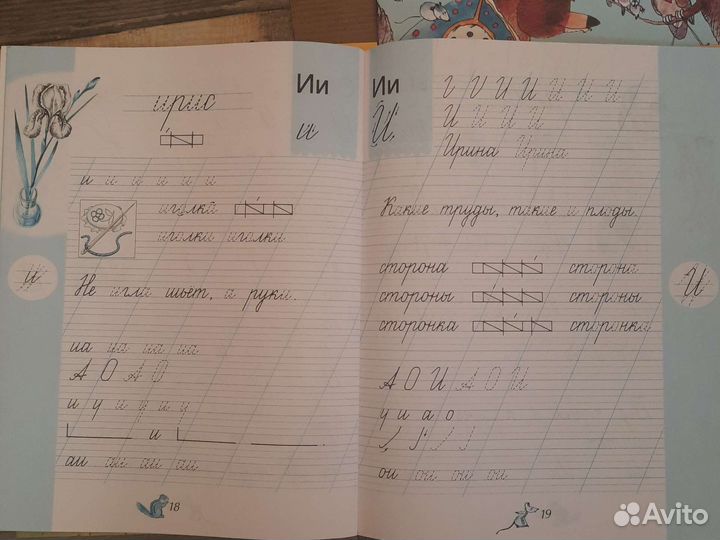 Ии
ирис
и
и и и и и и
иголка
иголка иголка
Не игла шьёт, а руки.
иа иа иа иа
А О А О
и у и у и у
и
аи аи аи аи
18
и
Ии
И
г И И И И И И
И И И И
Ирина Ирина
Какие труды, такие и плоды.
сторона сторона
стороны стороны
сторонка сторонка
А О И А О И
у и а о
ои ои ои ои
19
И
Avito